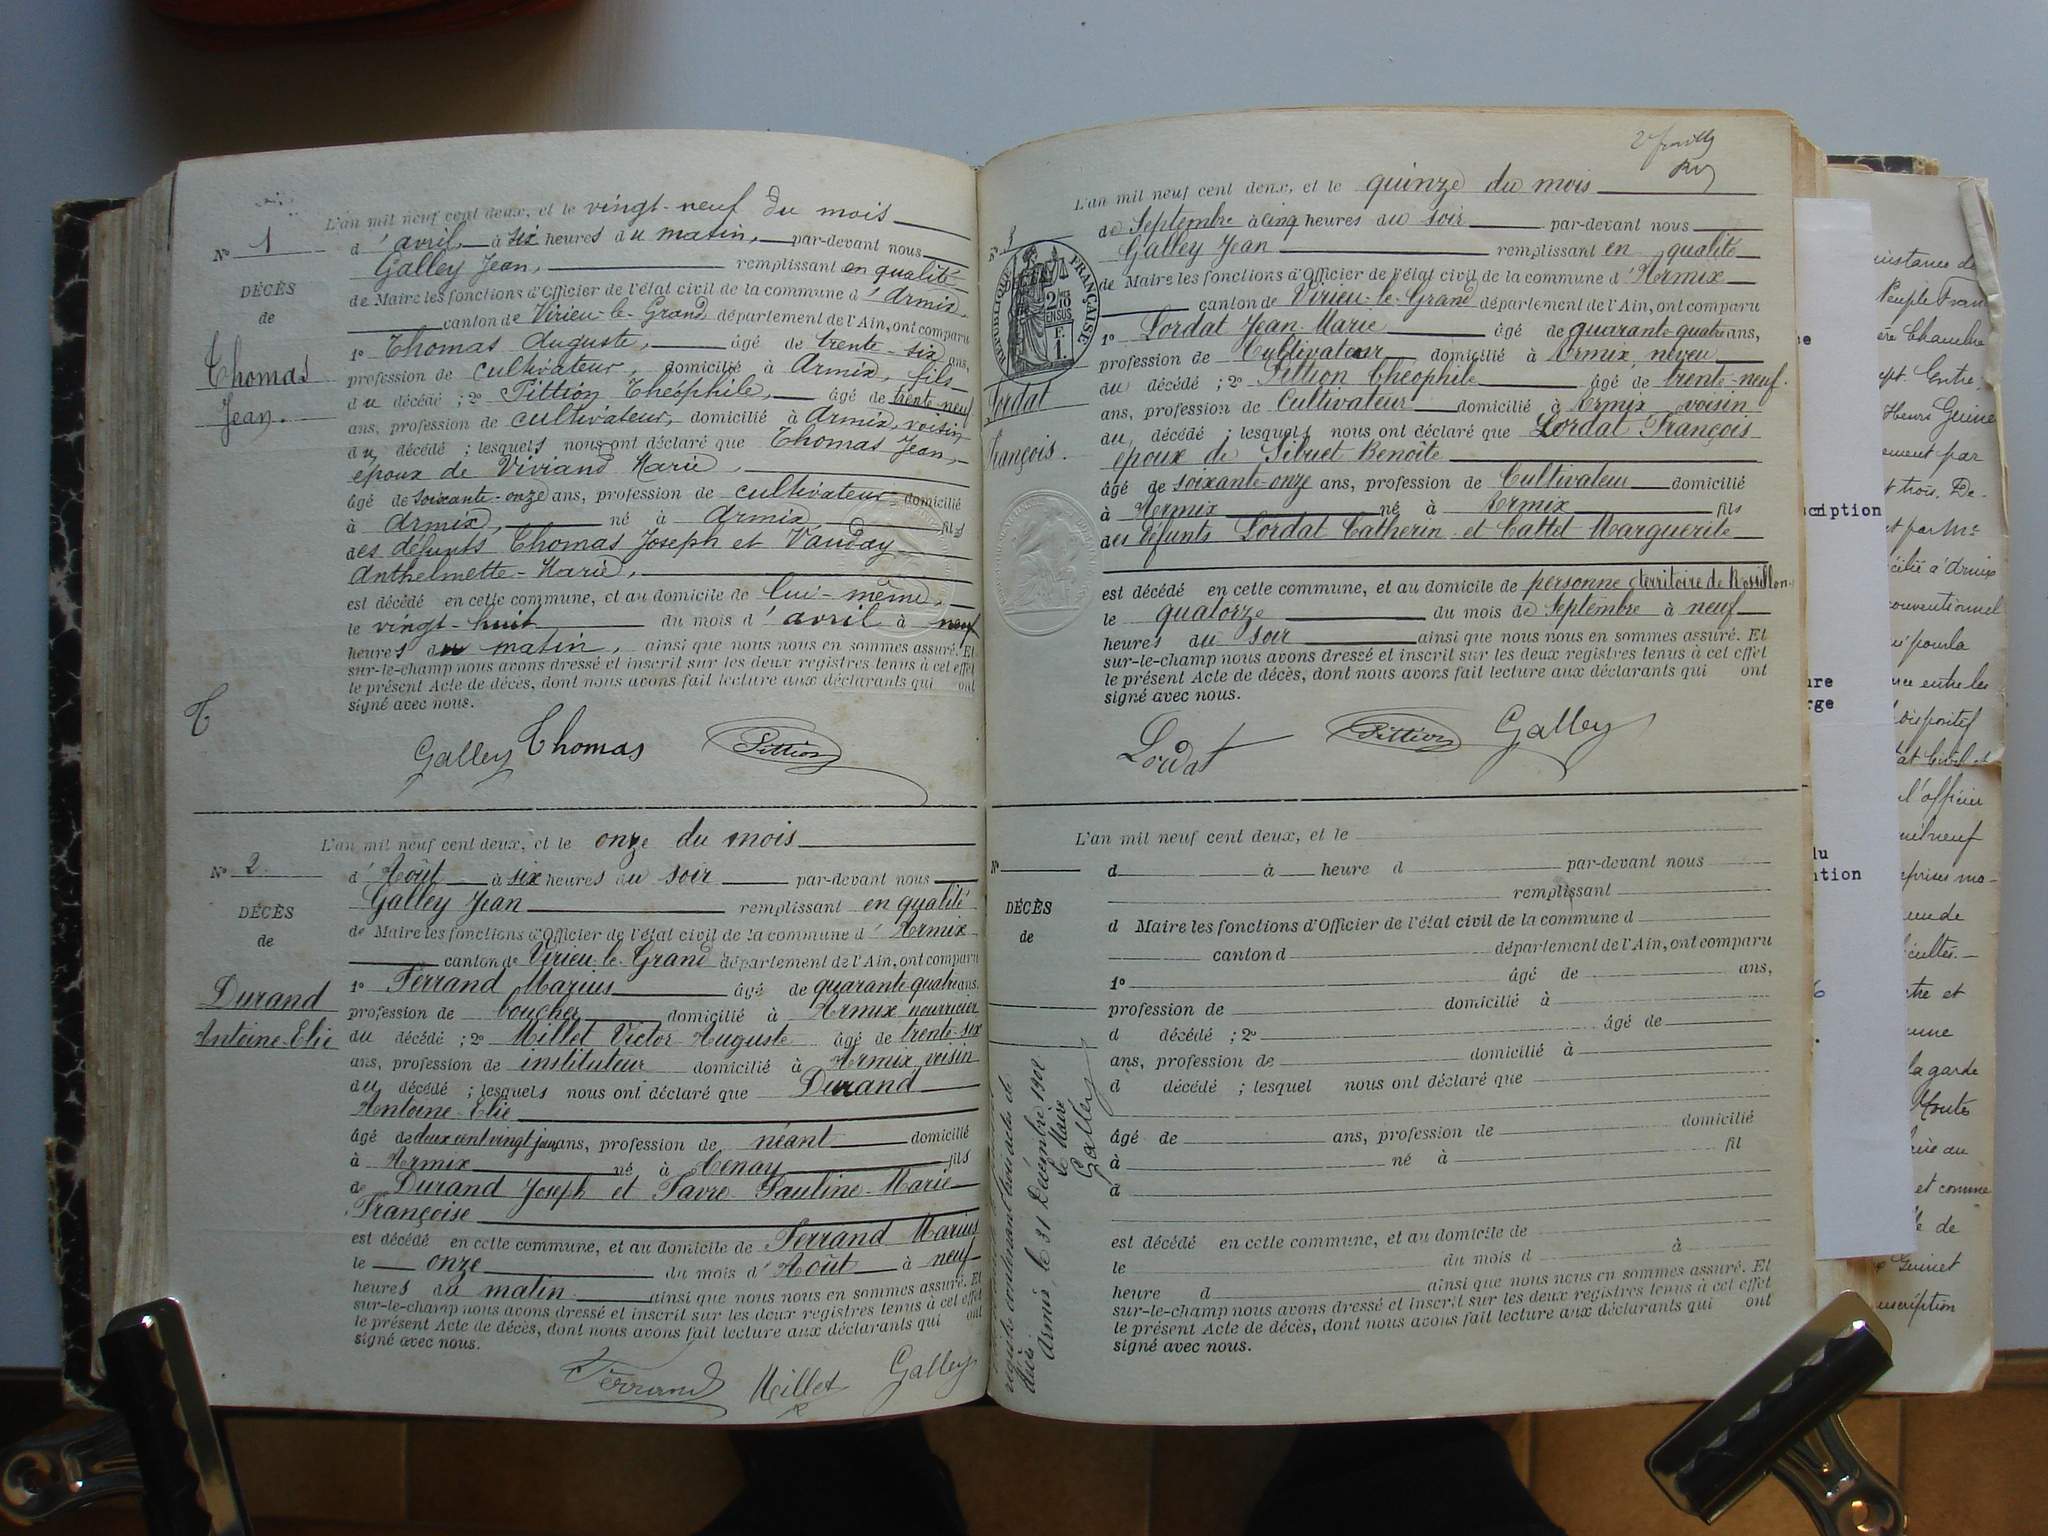 L'an mil neuf cent deux, et le vingt-neuf du mois
N° 1
d'avril à six heures du matin, par-devant nous
Galley Jean, remplissant en qualité
DÉCÈS
de Maire les fonctions d'Officier de l'état civil de la commune d'Armix,
de
canton de Virieu-le-Grand département de l'Ain, ont comparu
1° Thomas Auguste, âgé de trente-six ans,
Thomas
profession de cultivateur, domicilié à Armix, fils
du décédé ; 2° Pittion Théophile, âgé de trente-neuf
Jean.
ans, profession de cultivateur, domicilié à Armix, voisin
du décédé ; lesquels nous ont déclaré que Thomas Jean,
époux de Viviand Marie,
âgé de soixante-onze ans, profession de cultivateur domicilié
à Armix, né à Armix fils
des défunts Thomas Joseph et Vauday
Anthelmette-Marie,
est décédé en cette commune, et au domicile de lui-même,
le vingt-huit du mois d'avril à neuf
heures du matin, ainsi que nous nous en sommes assuré. Et
sur-le-champ nous avons dressé et inscrit sur les deux registres tenus à cet effet
le présent Acte de décès, dont nous avons fait lecture aux déclarants qui ont
signé avec nous.
T
Galley Thomas Pittion
L'an mil neuf cent deux, et le onze du mois
N° 2
d'Août à six heures du soir par-devant nous
Galley Jean remplissant en qualité
DÉCÈS
de Maire les fonctions d'Officier de l'état civil de la commune d'Armix
de
canton de Virieu-le-Grand département de l'Ain, ont comparu
1° Ferrand Marius âgé de quarante-quatre ans,
Durand
profession de boucher domicilié à Armix nourricier
Antoine-Elie
du décédé ; 2° Millet Victor-Auguste âgé de trente-six
ans, profession de instituteur domicilié à Armix voisin
du décédé ; lesquels nous ont déclaré que Durand
Antoine-Elie
âgé de deux cent vingt jours ans, profession de néant domicilié
à Armix né à Tenay fils
de Durand Joseph et Favre Pauline-Marie
Françoise
est décédé en cette commune, et au domicile de Ferrand Marius
le onze du mois d'Août à neuf
heures du matin ainsi que nous nous en sommes assuré. Et
sur-le-champ nous avons dressé et inscrit sur les deux registres tenus à cet effet
le présent Acte de décès, dont nous avons fait lecture aux déclarants qui ont
signé avec nous.
Ferrand Millet Galley
L'an mil neuf cent deux, et le quinze du mois
N° 3
de Septembre à cinq heures du soir par-devant nous
Galley Jean remplissant en qualité
RÉPUBLIQUE FRANÇAISE
2/10 EN SUS
F. 1.
de Maire les fonctions d'Officier de l'état civil de la commune d'Armix
canton de Virieu-le-Grand département de l'Ain, ont comparu
1° Lordat Jean-Marie âgé de quarante-quatre ans,
profession de Cultivateur domicilié à Armix, neveu
du décédé ; 2° Pittion Théophile âgé de trente-neuf
Lordat
ans, profession de Cultivateur domicilié à Armix voisin
du décédé ; lesquels nous ont déclaré que Lordat François
François.
époux de Sibuet Benoîte
âgé de soixante-onze ans, profession de Cultivateur domicilié
à Armix né à Armix fils
des défunts Lordat Catherin et Cattet Marguerite
est décédé en cette commune, et au domicile de personne territoire de Rossillon
le quatorze du mois de Septembre à neuf
heures du soir ainsi que nous nous en sommes assuré. Et
sur-le-champ nous avons dressé et inscrit sur les deux registres tenus à cet effet
le présent Acte de décès, dont nous avons fait lecture aux déclarants qui ont
signé avec nous.
Lordat Pittion Galley
L'an mil neuf cent deux, et le
N°
d à heure d par-devant nous
remplissant
DÉCÈS
d Maire les fonctions d'Officier de l'état civil de la commune d
de
canton d département de l'Ain, ont comparu
1° âgé de ans,
profession de domicilié à
d décédé ; 2° âgé de
ans, profession de domicilié à
d décédé ; lesquel nous ont déclaré que
âgé de ans, profession de domicilié
à né à fil
d
est décédé en cette commune, et au domicile de
le du mois d à
heure d ainsi que nous nous en sommes assuré. Et
sur-le-champ nous avons dressé et inscrit sur les deux registres tenus à cet effet
le présent Acte de décès, dont nous avons fait lecture aux déclarants qui ont
signé avec nous.
registre contenant trois actes de
décès
Armix, le 31 Décembre 1902
le Maire
Galley
Peuple Fran
Henri Guine
ement par
t trois. De-
cription
cilié à Armix
conventionnel
pour la
entre les
dispositif
l'officier
mil neuf
tre et
la garde
et comme
de
Guinet